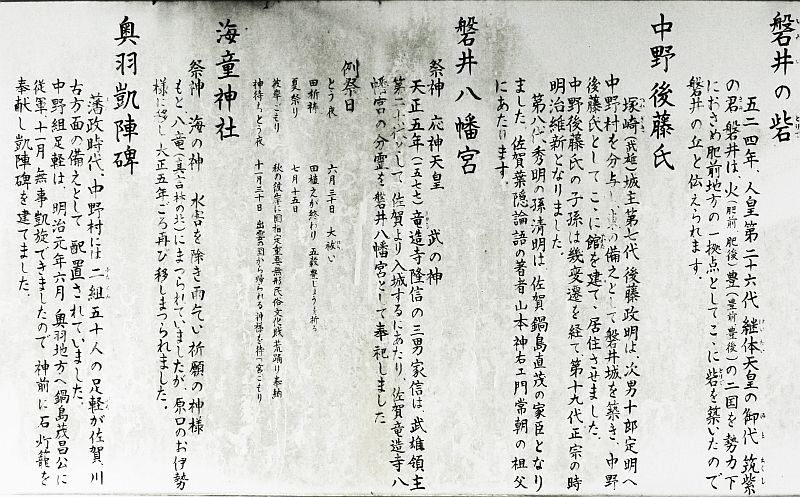 磐井の砦
五二四年、人皇第二十六代 継体天皇の御代 筑紫
の君 磐井は、火(肥前 肥後)豊(豊前 豊後)の二国を勢力下
におさめ肥前地方の一拠点としてこゝに砦を築いたので
磐井の丘と伝えられます。
中野後藤氏
塚崎(武雄)城主第十七代 後藤政明は、次男十郎定明へ
中野村を分与し の備えとして磐井城を築き、中野
後藤氏としてこゝに館を建て、居住させました。
中野後藤氏の子孫は幾変遷を経て、第十九代正宗の時
明治維新となりました。
第八代秀明の孫清明は、佐賀鍋島直茂の家臣となり
ました。佐賀葉隠論語の著者山本神右エ門常朝の祖父
にあたります。
磐井八幡宮
祭神 応神天皇 武の神
天正五年(一五七七)竜造寺隆信の三男家信は、武雄領主
第二十代として、佐賀より入城するにあたり、佐賀竜造寺八
幡宮の分霊を磐井八幡宮として奉祀しました
例祭日
とう夜 六月三十日 大祓い
田祈祷 田植えが終わり 五穀豊じょうを祈る
夏祭り 七月十五日
彼岸ごもり 秋の彼岸に国指定重要無形民俗文化財 荒踊り奉納
神待ちとう夜 十一月三十日 出雲国から帰られる神様を待つ宮ごもり
海童神社
祭神 海の神 水害を除き雨乞い祈願の神様
もと八竜(真言林の北)にまつられていましたが、原口のお伊勢
様に移し、大正五年ごろ再び移しまつられました。
奥羽凱陣碑
藩政時代、中野村には二組五十人の足軽が佐賀、川
古方面の備えとして 配置されていました。
中野組足軽は、明治元年六月 奥羽地方へ鍋島茂昌公に
従軍十二月 無事凱旋できましたので 神前に石灯籠を
奉献し凱陣碑を建てました。